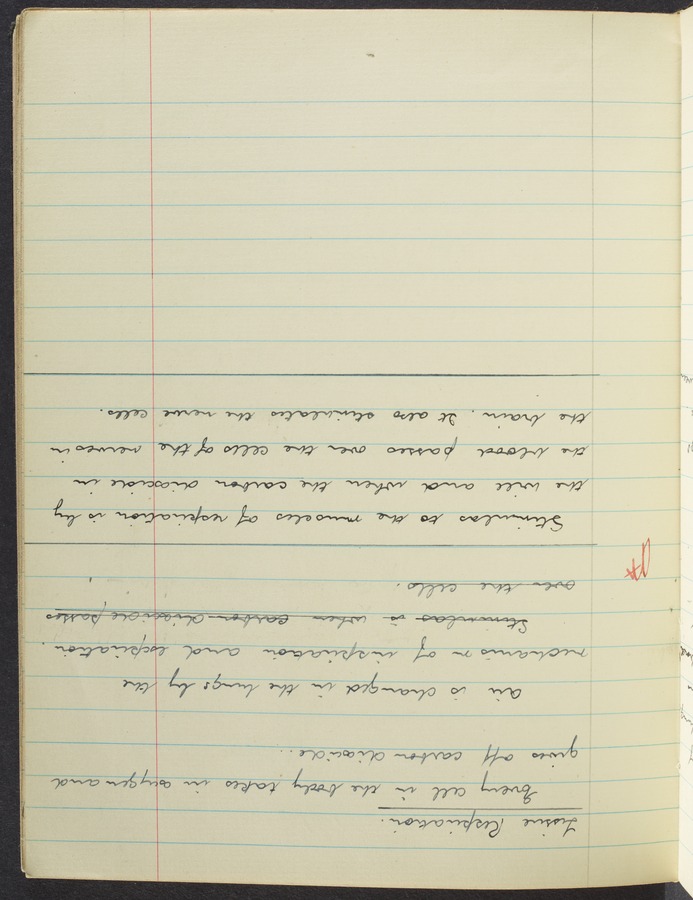 Tissue Respiration.
Every cell in the body takes in oxygen and
gives off carbon dioxide.
Air is changed in the lungs by the
mechanism of inspiration and expiration.
Stimulas is when carbon dioxide passes
over the cells.
Stimulas to the muscles of respiration is by
the will and when the carbon dioxide in
the blood passes over the cells of the nerves in
the brain. It also stimulates the nerve cells.